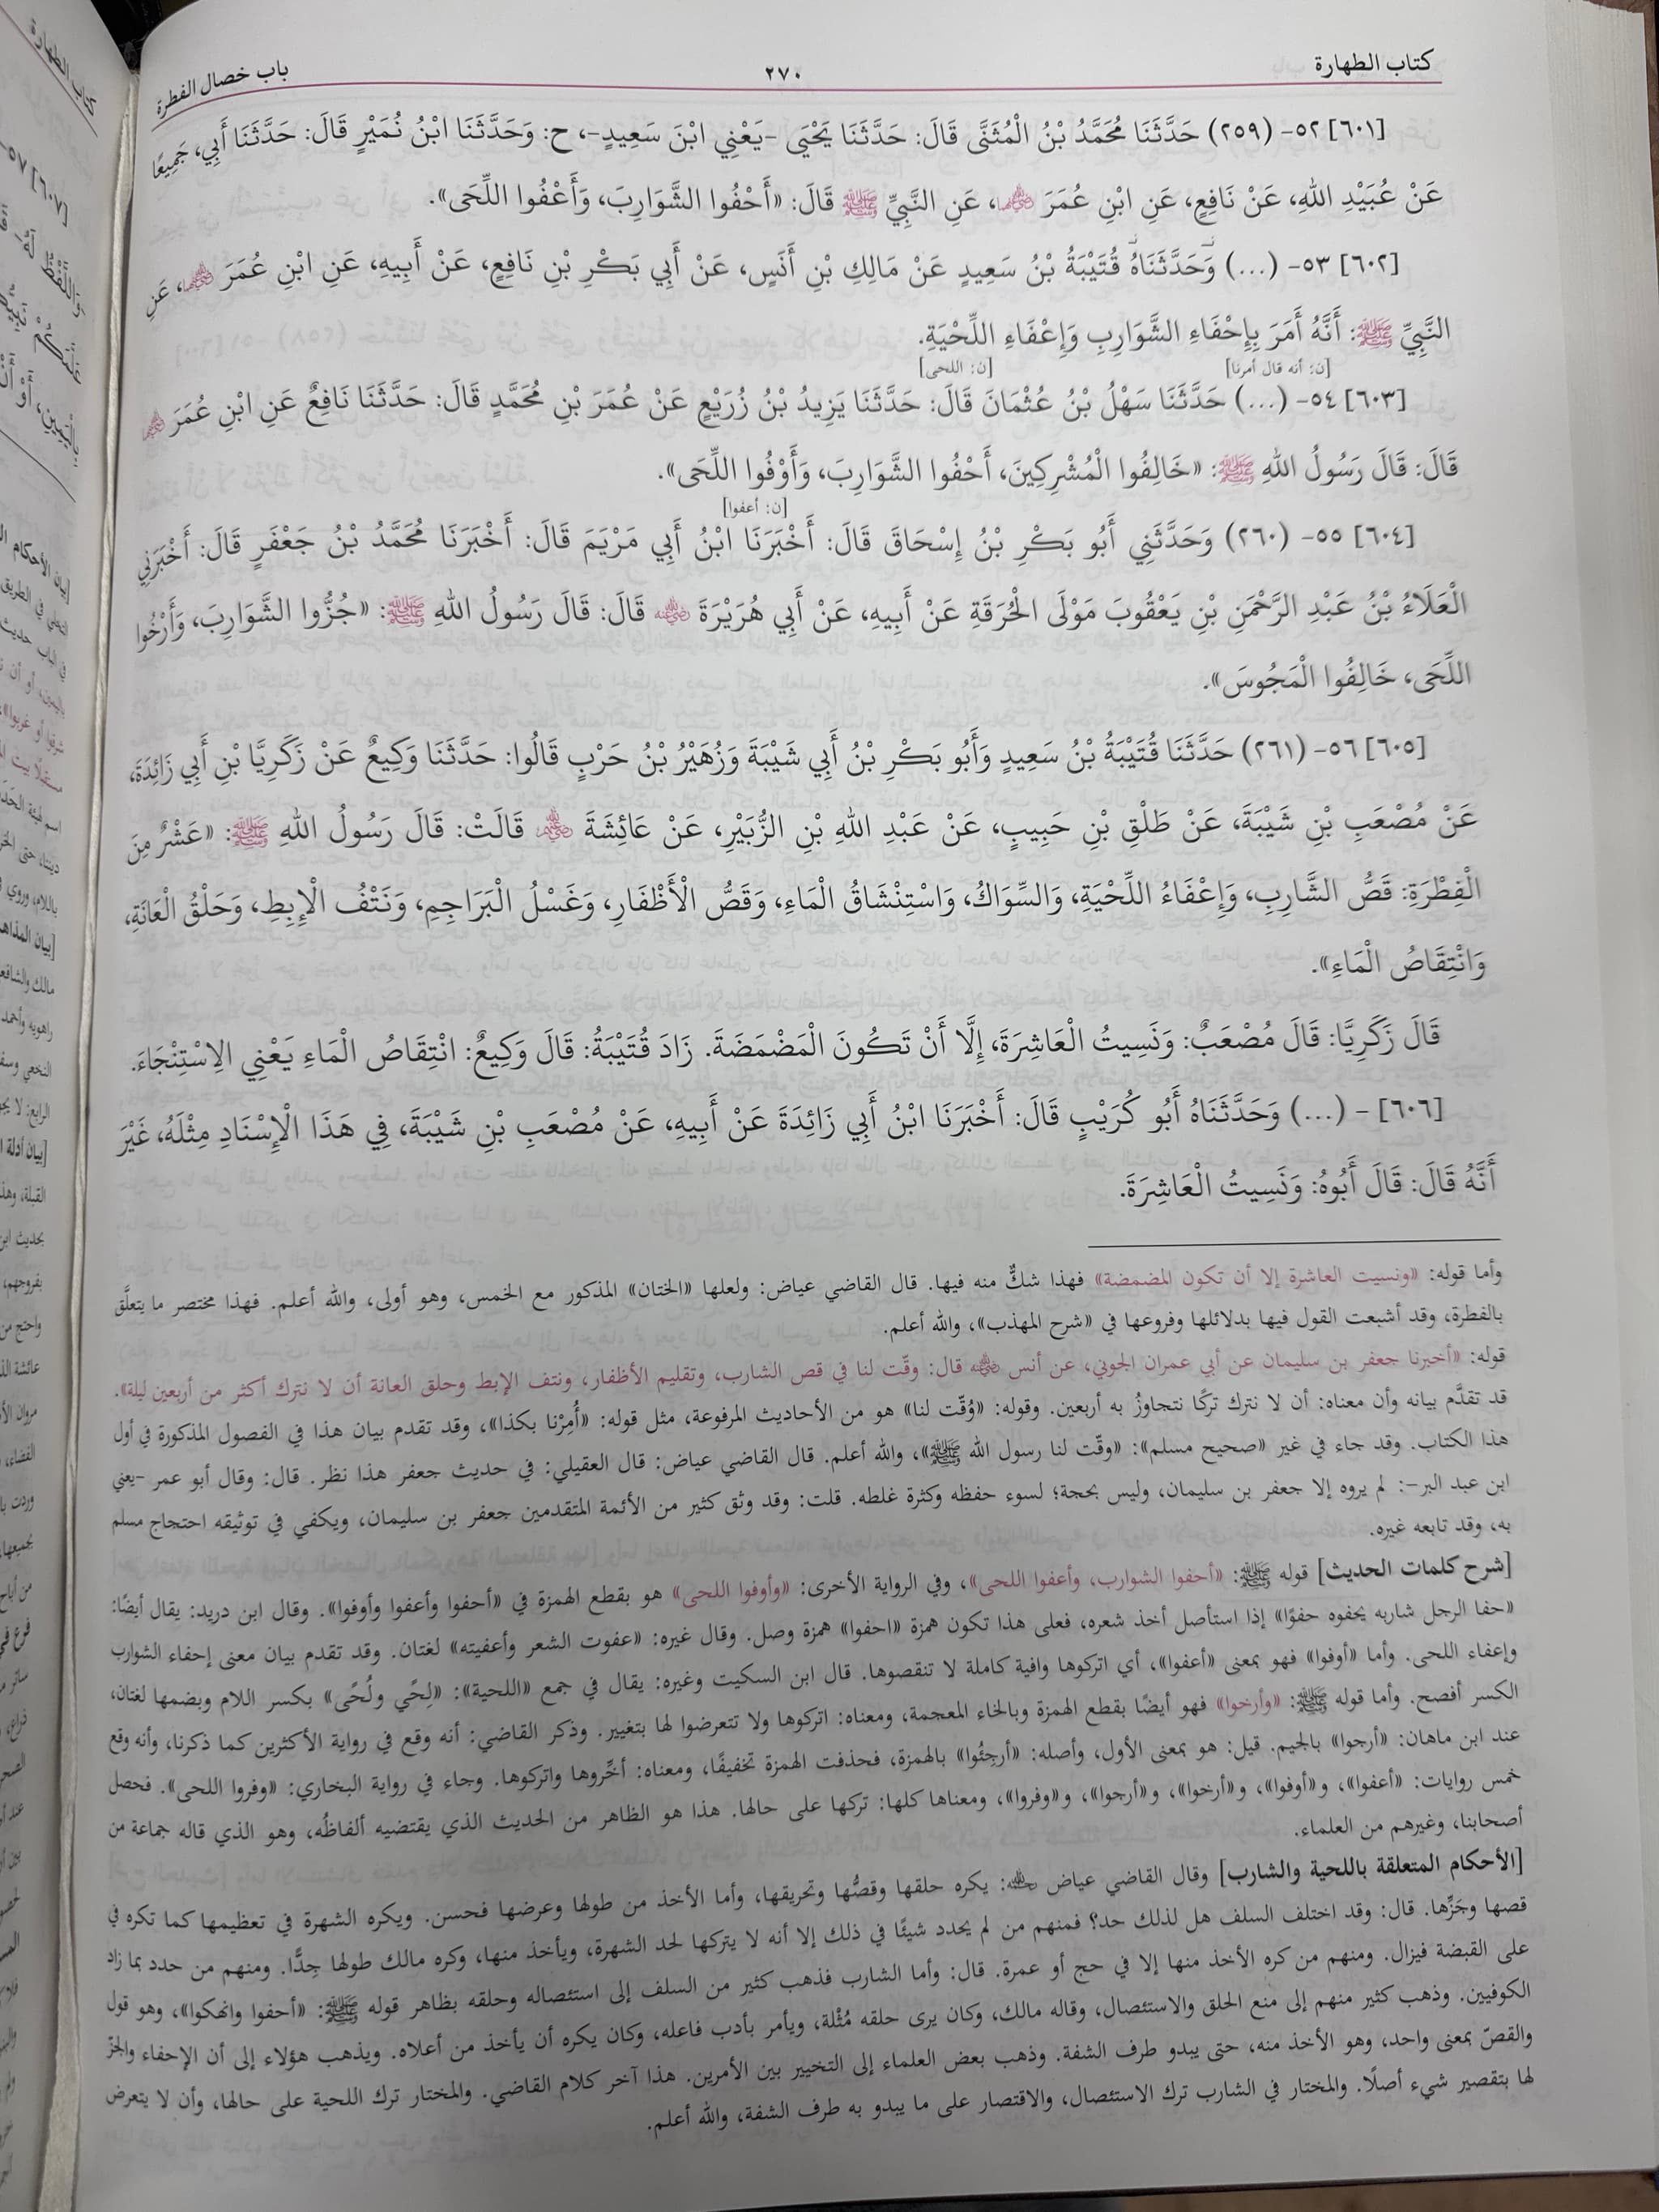 كتاب الطهارة
٢٧٠
باب خصال الفطرة
[٦٠١] ٥٢- (٢٥٩) حَدَّثَنَا مُحَمَّدُ بْنُ الْمُثَنَّى قَالَ: حَدَّثَنَا يَحْيَى -يَعْنِي ابْنَ سَعِيدٍ-، ح: وَحَدَّثَنَا ابْنُ نُمَيْرٍ قَالَ: حَدَّثَنَا أَبِي، جَمِيعًا
عَنْ عُبَيْدِ اللهِ، عَنْ نَافِعٍ، عَنِ ابْنِ عُمَرَ ﵄، عَنِ النَّبِيِّ ﷺ قَالَ: «أَحْفُوا الشَّوَارِبَ، وَأَعْفُوا اللِّحَى».
[٦٠٢] ٥٣- (...) وَحَدَّثَنَاهُ قُتَيْبَةُ بْنُ سَعِيدٍ عَنْ مَالِكِ بْنِ أَنَسٍ، عَنْ أَبِي بَكْرِ بْنِ نَافِعٍ، عَنْ أَبِيهِ، عَنِ ابْنِ عُمَرَ ﵄، عَنِ
النَّبِيِّ ﷺ: أَنَّهُ أَمَرَ بِإِحْفَاءِ الشَّوَارِبِ وَإِعْفَاءِ اللِّحْيَةِ.
[ن: أنه قال أمرنا] [ن: اللحى]
[٦٠٣] ٥٤- (...) حَدَّثَنَا سَهْلُ بْنُ عُثْمَانَ قَالَ: حَدَّثَنَا يَزِيدُ بْنُ زُرَيْعٍ عَنْ عُمَرَ بْنِ مُحَمَّدٍ قَالَ: حَدَّثَنَا نَافِعٌ عَنِ ابْنِ عُمَرَ ﵄
قَالَ: قَالَ رَسُولُ اللهِ ﷺ: «خَالِفُوا الْمُشْرِكِينَ، أَحْفُوا الشَّوَارِبَ، وَأَوْفُوا اللِّحَى».
[ن: أعفوا]
[٦٠٤] ٥٥- (٢٦٠) وَحَدَّثَنِي أَبُو بَكْرِ بْنُ إِسْحَاقَ قَالَ: أَخْبَرَنَا ابْنُ أَبِي مَرْيَمَ قَالَ: أَخْبَرَنَا مُحَمَّدُ بْنُ جَعْفَرٍ قَالَ: أَخْبَرَنِي
الْعَلَاءُ بْنُ عَبْدِ الرَّحْمَنِ بْنِ يَعْقُوبَ مَوْلَى الْحُرَقَةِ عَنْ أَبِيهِ، عَنْ أَبِي هُرَيْرَةَ ﵁ قَالَ: قَالَ رَسُولُ اللهِ ﷺ: «جُزُّوا الشَّوَارِبَ، وَأَرْخُوا
اللِّحَى، خَالِفُوا الْمَجُوسَ».
[٦٠٥] ٥٦- (٢٦١) حَدَّثَنَا قُتَيْبَةُ بْنُ سَعِيدٍ وَأَبُو بَكْرِ بْنُ أَبِي شَيْبَةَ وَزُهَيْرُ بْنُ حَرْبٍ قَالُوا: حَدَّثَنَا وَكِيعٌ عَنْ زَكَرِيَّا بْنِ أَبِي زَائِدَةَ،
عَنْ مُصْعَبِ بْنِ شَيْبَةَ، عَنْ طَلْقِ بْنِ حَبِيبٍ، عَنْ عَبْدِ اللهِ بْنِ الزُّبَيْرِ، عَنْ عَائِشَةَ ﵂ قَالَتْ: قَالَ رَسُولُ اللهِ ﷺ: «عَشْرٌ مِنَ
الْفِطْرَةِ: قَصُّ الشَّارِبِ، وَإِعْفَاءُ اللِّحْيَةِ، وَالسِّوَاكُ، وَاسْتِنْشَاقُ الْمَاءِ، وَقَصُّ الْأَظْفَارِ، وَغَسْلُ الْبَرَاجِمِ، وَنَتْفُ الْإِبِطِ، وَحَلْقُ الْعَانَةِ،
وَانْتِقَاصُ الْمَاءِ».
قَالَ زَكَرِيَّا: قَالَ مُصْعَبٌ: وَنَسِيتُ الْعَاشِرَةَ، إِلَّا أَنْ تَكُونَ الْمَضْمَضَةَ. زَادَ قُتَيْبَةُ: قَالَ وَكِيعٌ: انْتِقَاصُ الْمَاءِ يَعْنِي الِاسْتِنْجَاءَ.
[٦٠٦] - (...) وَحَدَّثَنَاهُ أَبُو كُرَيْبٍ قَالَ: أَخْبَرَنَا ابْنُ أَبِي زَائِدَةَ عَنْ أَبِيهِ، عَنْ مُصْعَبِ بْنِ شَيْبَةَ، فِي هَذَا الْإِسْنَادِ مِثْلَهُ، غَيْرَ
أَنَّهُ قَالَ: قَالَ أَبُوهُ: وَنَسِيتُ الْعَاشِرَةَ.
وأما قوله: «ونسيت العاشرة إلا أن تكون المضمضة» فهذا شكٌّ منه فيها. قال القاضي عياض: ولعلها «الختان» المذكور مع الخمس، وهو أولى، والله أعلم. فهذا مختصر ما يتعلَّق
بالفطرة، وقد أشبعت القول فيها بدلائلها وفروعها في «شرح المهذب»، والله أعلم.
قوله: «أخبرنا جعفر بن سليمان عن أبي عمران الجوني، عن أنس ﵁ قال: وقّت لنا في قص الشارب، وتقليم الأظفار، ونتف الإبط وحلق العانة أن لا نترك أكثر من أربعين ليلة».
قد تقدَّم بيانه وأن معناه: أن لا نترك تركًا نتجاوزُ به أربعين. وقوله: «وُقّت لنا» هو من الأحاديث المرفوعة، مثل قوله: «أُمِرْنا بكذا»، وقد تقدم بيان هذا في الفصول المذكورة في أول
هذا الكتاب. وقد جاء في غير «صحيح مسلم»: «وقّت لنا رسول الله ﷺ»، والله أعلم. قال القاضي عياض: قال العقيلي: في حديث جعفر هذا نظر. قال: وقال أبو عمر -يعني
ابن عبد البر-: لم يروه إلا جعفر بن سليمان، وليس بحجة؛ لسوء حفظه وكثرة غلطه. قلت: وقد وثق كثير من الأئمة المتقدمين جعفر بن سليمان، ويكفي في توثيقه احتجاج مسلم
به، وقد تابعه غيره.
[شرح كلمات الحديث] قوله ﷺ: «أحفوا الشوارب، وأعفوا اللحى»، وفي الرواية الأخرى: «وأوفوا اللحى» هو بقطع الهمزة في «أحفوا وأعفوا وأوفوا». وقال ابن دريد: يقال أيضًا:
«حفا الرجل شاربه يحفوه حفوًا» إذا استأصل أخذ شعره، فعلى هذا تكون همزة «احفوا» همزة وصل. وقال غيره: «عفوت الشعر وأعفيته» لغتان. وقد تقدم بيان معنى إحفاء الشوارب
وإعفاء اللحى. وأما «أوفوا» فهو بمعنى «أعفوا»، أي اتركوها وافية كاملة لا تنقصوها. قال ابن السكيت وغيره: يقال في جمع «اللحية»: «لِحًى ولُحًى» بكسر اللام وبضمها لغتان،
الكسر أفصح. وأما قوله ﷺ: «وأرخوا» فهو أيضًا بقطع الهمزة وبالخاء المعجمة، ومعناه: اتركوها ولا تتعرضوا لها بتغيير. وذكر القاضي: أنه وقع في رواية الأكثرين كما ذكرنا، وأنه وقع
عند ابن ماهان: «أرجوا» بالجيم. قيل: هو بمعنى الأول، وأصله: «أرجِئُوا» بالهمزة، فحذفت الهمزة تخفيفًا، ومعناه: أخِّروها واتركوها. وجاء في رواية البخاري: «وفروا اللحى». فحصل
خمس روايات: «أعفوا»، و«أوفوا»، و«أرخوا»، و«أرجوا»، و«وفروا»، ومعناها كلها: تركها على حالها. هذا هو الظاهر من الحديث الذي يقتضيه ألفاظُه، وهو الذي قاله جماعة من
أصحابنا، وغيرهم من العلماء.
[الأحكام المتعلقة باللحية والشارب] وقال القاضي عياض ﵀: يكره حلقها وقصُّها وتحريقها، وأما الأخذ من طولها وعرضها فحسن. ويكره الشهرة في تعظيمها كما تكره في
قصها وجَزِّها. قال: وقد اختلف السلف هل لذلك حد؟ فمنهم من لم يحدد شيئًا في ذلك إلا أنه لا يتركها لحد الشهرة، ويأخذ منها، وكره مالك طولها جِدًّا. ومنهم من حدد بما زاد
على القبضة فيزال. ومنهم من كره الأخذ منها إلا في حج أو عمرة. قال: وأما الشارب فذهب كثير من السلف إلى استئصاله وحلقه بظاهر قوله ﷺ: «أحفوا وانهكوا»، وهو قول
الكوفيين. وذهب كثير منهم إلى منع الحلق والاستئصال، وقاله مالك، وكان يرى حلقه مُثْلة، ويأمر بأدب فاعله، وكان يكره أن يأخذ من أعلاه. ويذهب هؤلاء إلى أن الإحفاء والجزّ
والقصّ بمعنى واحد، وهو الأخذ منه، حتى يبدو طرف الشفة. وذهب بعض العلماء إلى التخيير بين الأمرين. هذا آخر كلام القاضي. والمختار ترك اللحية على حالها، وأن لا يتعرض
لها بتقصير شيء أصلًا. والمختار في الشارب ترك الاستئصال، والاقتصار على ما يبدو به طرف الشفة، والله أعلم.